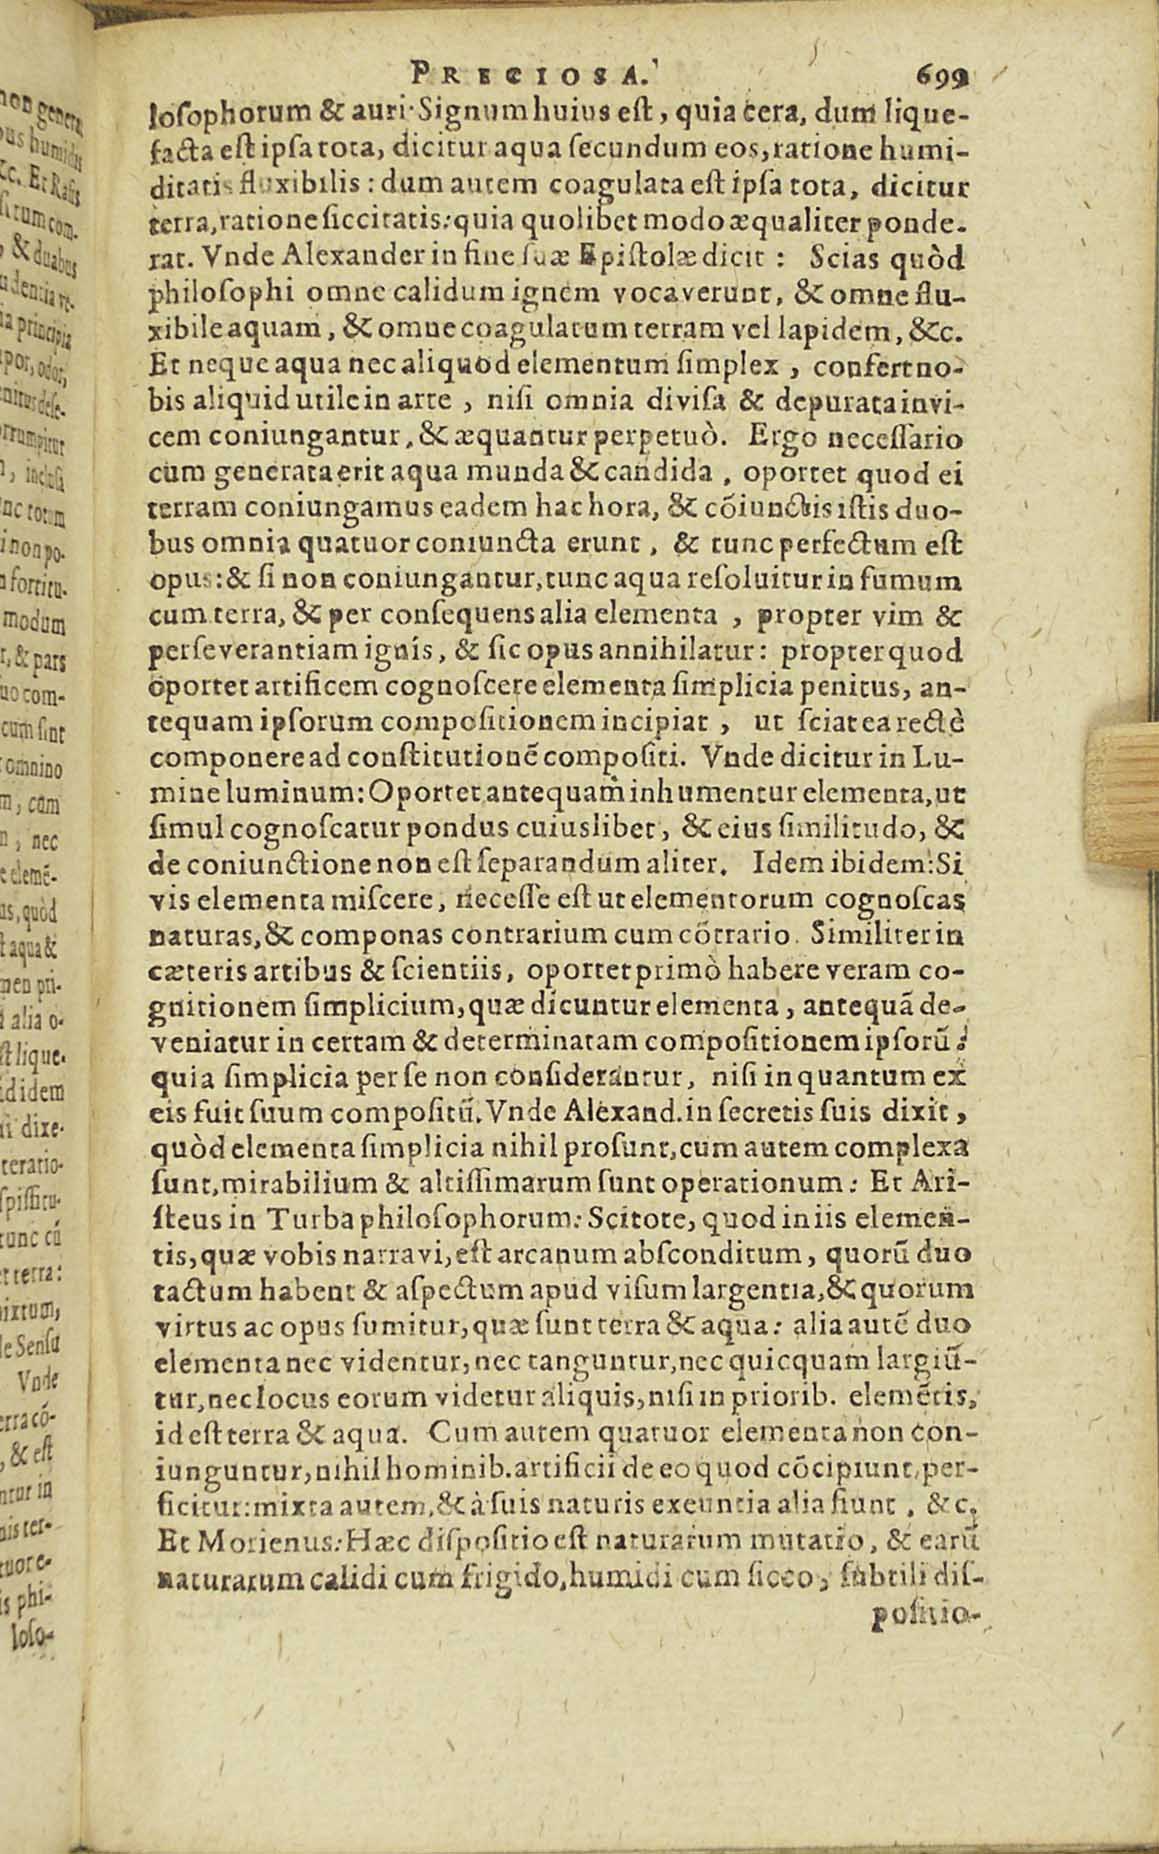 PRECIOSA. 699
losophorum & auri. Signum huius est, quia cera, dum lique-
facta est ipsa tota, dicitur aqua secundum eos, ratione humi-
ditatis fluxibilis : dum autem coagulata est ipsa tota, dicitur
terra, ratione siccitatis: quia quolibet modo æqualiter ponde-
rat. Vnde Alexander in fine suæ Epistolæ dicit : Scias quòd
philosophi omne calidum ignem vocaverunt, & omne flu-
xibile aquam, & omne coagulatum terram vel lapidem, &c.
Et neque aqua nec aliquod elementum simplex, confert no-
bis aliquid utile in arte, nisi omnia divisa & depurata invi-
cem coniungantur, & æquantur perpetuò. Ergo necessario
cum generata erit aqua munda & candida, oportet quod ei
terram coniungamus eadem hac hora, & cõiunctis istis duo-
bus omnia quatuor coniuncta erunt, & tunc perfectum est
opus: & si non coniungantur, tunc aqua resoluitur in fumum
cum terra, & per consequens alia elementa, propter vim &
perseverantiam ignis, & sic opus annihilatur: propter quod
oportet artificem cognoscere elementa simplicia penitus, an-
tequam ipsorum compositionem incipiat, ut sciat ea rectè
componere ad constitutionẽ compositi. Vnde dicitur in Lu-
mine luminum: Oportet antequam inhumentur elementa, ut
simul cognoscatur pondus cuiuslibet, & eius similitudo, &
de coniunctione non est separandum aliter. Idem ibidem: Si
vis elementa miscere, necesse est ut elementorum cognoscas
naturas, & componas contrarium cum cõtrario. Similiter in
cæteris artibus & scientiis, oportet primò habere veram co-
gnitionem simplicium, quæ dicuntur elementa, antequã de-
veniatur in certam & determinatam compositionem ipsorũ:
quia simplicia per se non considerantur, nisi inquantum ex
eis fuit suum compositũ. Vnde Alexand. in secretis suis dixit,
quòd elementa simplicia nihil prosunt, cum autem complexa
sunt, mirabilium & altissimarum sunt operationum: Et Ari-
steus in Turba philosophorum: Scitote, quod in iis elemen-
tis, quæ vobis narravi, est arcanum absconditum, quorũ duo
tactum habent & aspectum apud visum largentia, & quorum
virtus ac opus sumitur, quæ sunt terra & aqua: alia autẽ duo
elementa nec videntur, nec tanguntur, nec quicquam largiũ-
tur, nec locus eorum videtur aliquis, nisi in priorib. elemẽtis,
id est terra & aqua. Cum autem quatuor elementa non con-
iunguntur, nihil hominib. artificii de eo quod cõcipiunt, per-
ficitur: mixta autem, & à suis naturis exeuntia alia fiunt, &c.
Et Morienus: Hæc dispositio est naturarum mutatio, & earũ
naturarum calidi cum frigido, humidi cum sicco, subtili dis-
positio-